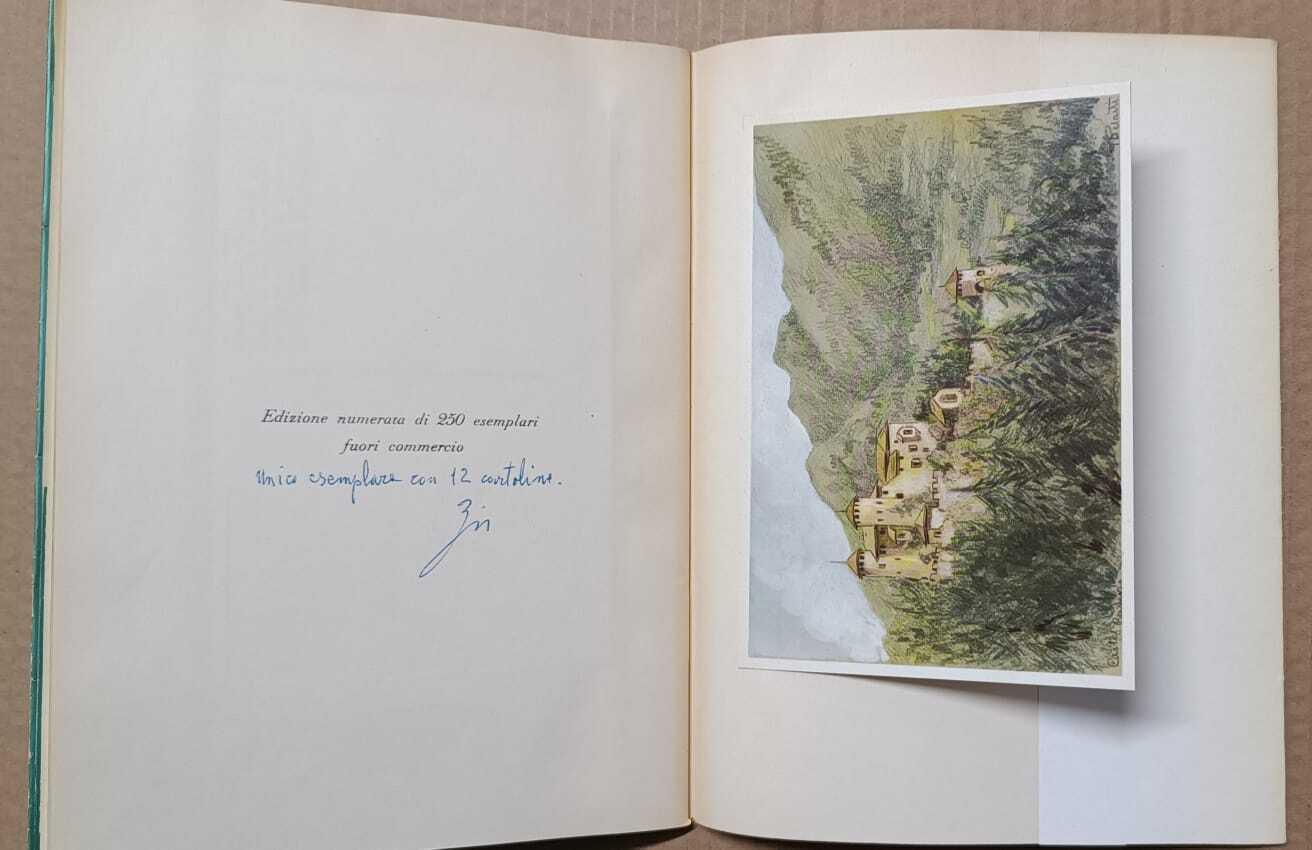 Edizione numerata di 250 esemplari
fuori commercio
Unico esemplare con 12 cartoline.